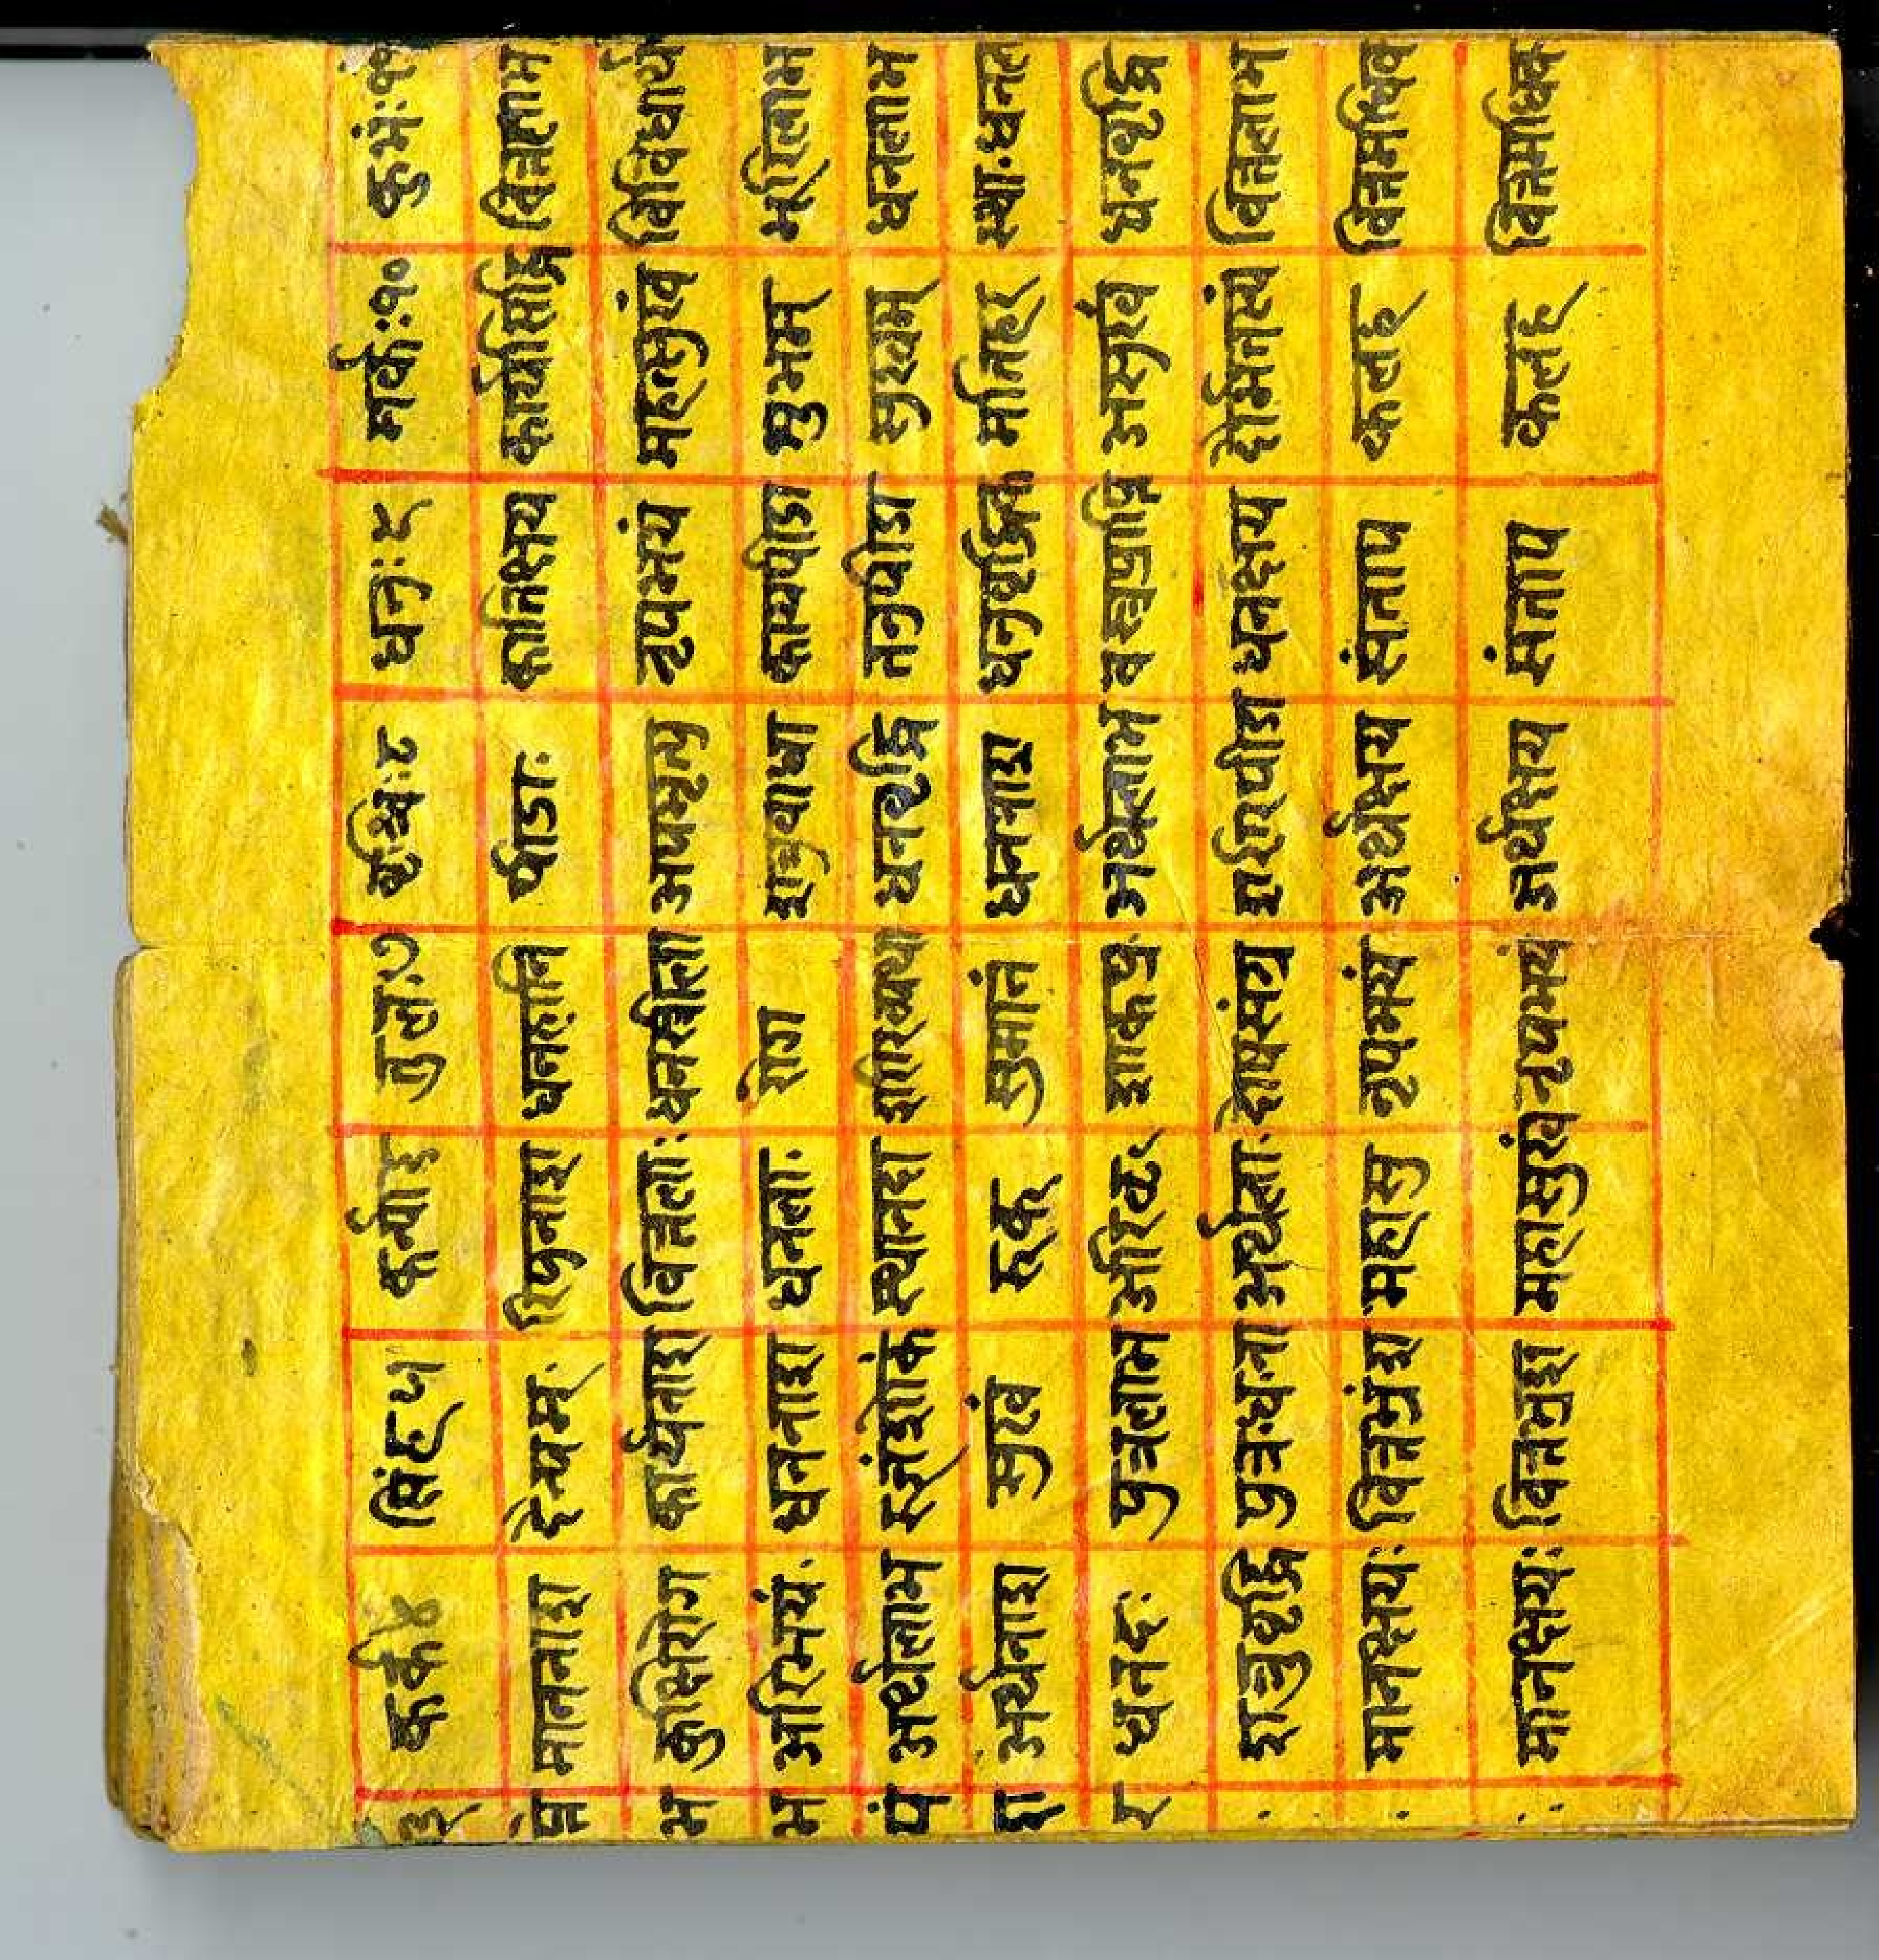 ३ कर्क४ सिंह ५ कन्या६ तुलाः७ वृश्चिः८ धनुः९ मर्कः१० कुभंः११
माननाश देन्यमः रिपुनाश धनहानि पीडाः कान्तिक्षय कार्यसिद्धि वित्तलाभ
भ कुक्षिरोग कार्यनाश वित्तलाः धनस्त्रीला अपमृत्यु नृपभयं महत्सुखं विविधार्थ
भ अरिभयं धननाश धनलाः रोग शत्रुबाधा कायपीडा शुभम् भूरिलाभ
पं अर्थलाभ रुजंशोकं धनवृद्धि तनुपीडा सुखम् धनलाभ
श अर्थनाश सुखं रुक् सुमति धननाश मतिहर स्थाःधनल
र धनदः पुत्रलाभ अरिष्ट अर्थलाभ असुखं धनवृद्धि
शत्रुवृद्धि पुत्रधना अर्थलाः शरिरपीडा धनक्षय वित्तलाभ
मानक्षयः वित्तभ्रंश महासु नृपभयं अर्थक्षय संताप कलह
मानक्षयः महासुखं नृपभयं अर्थक्षय संताप कलह